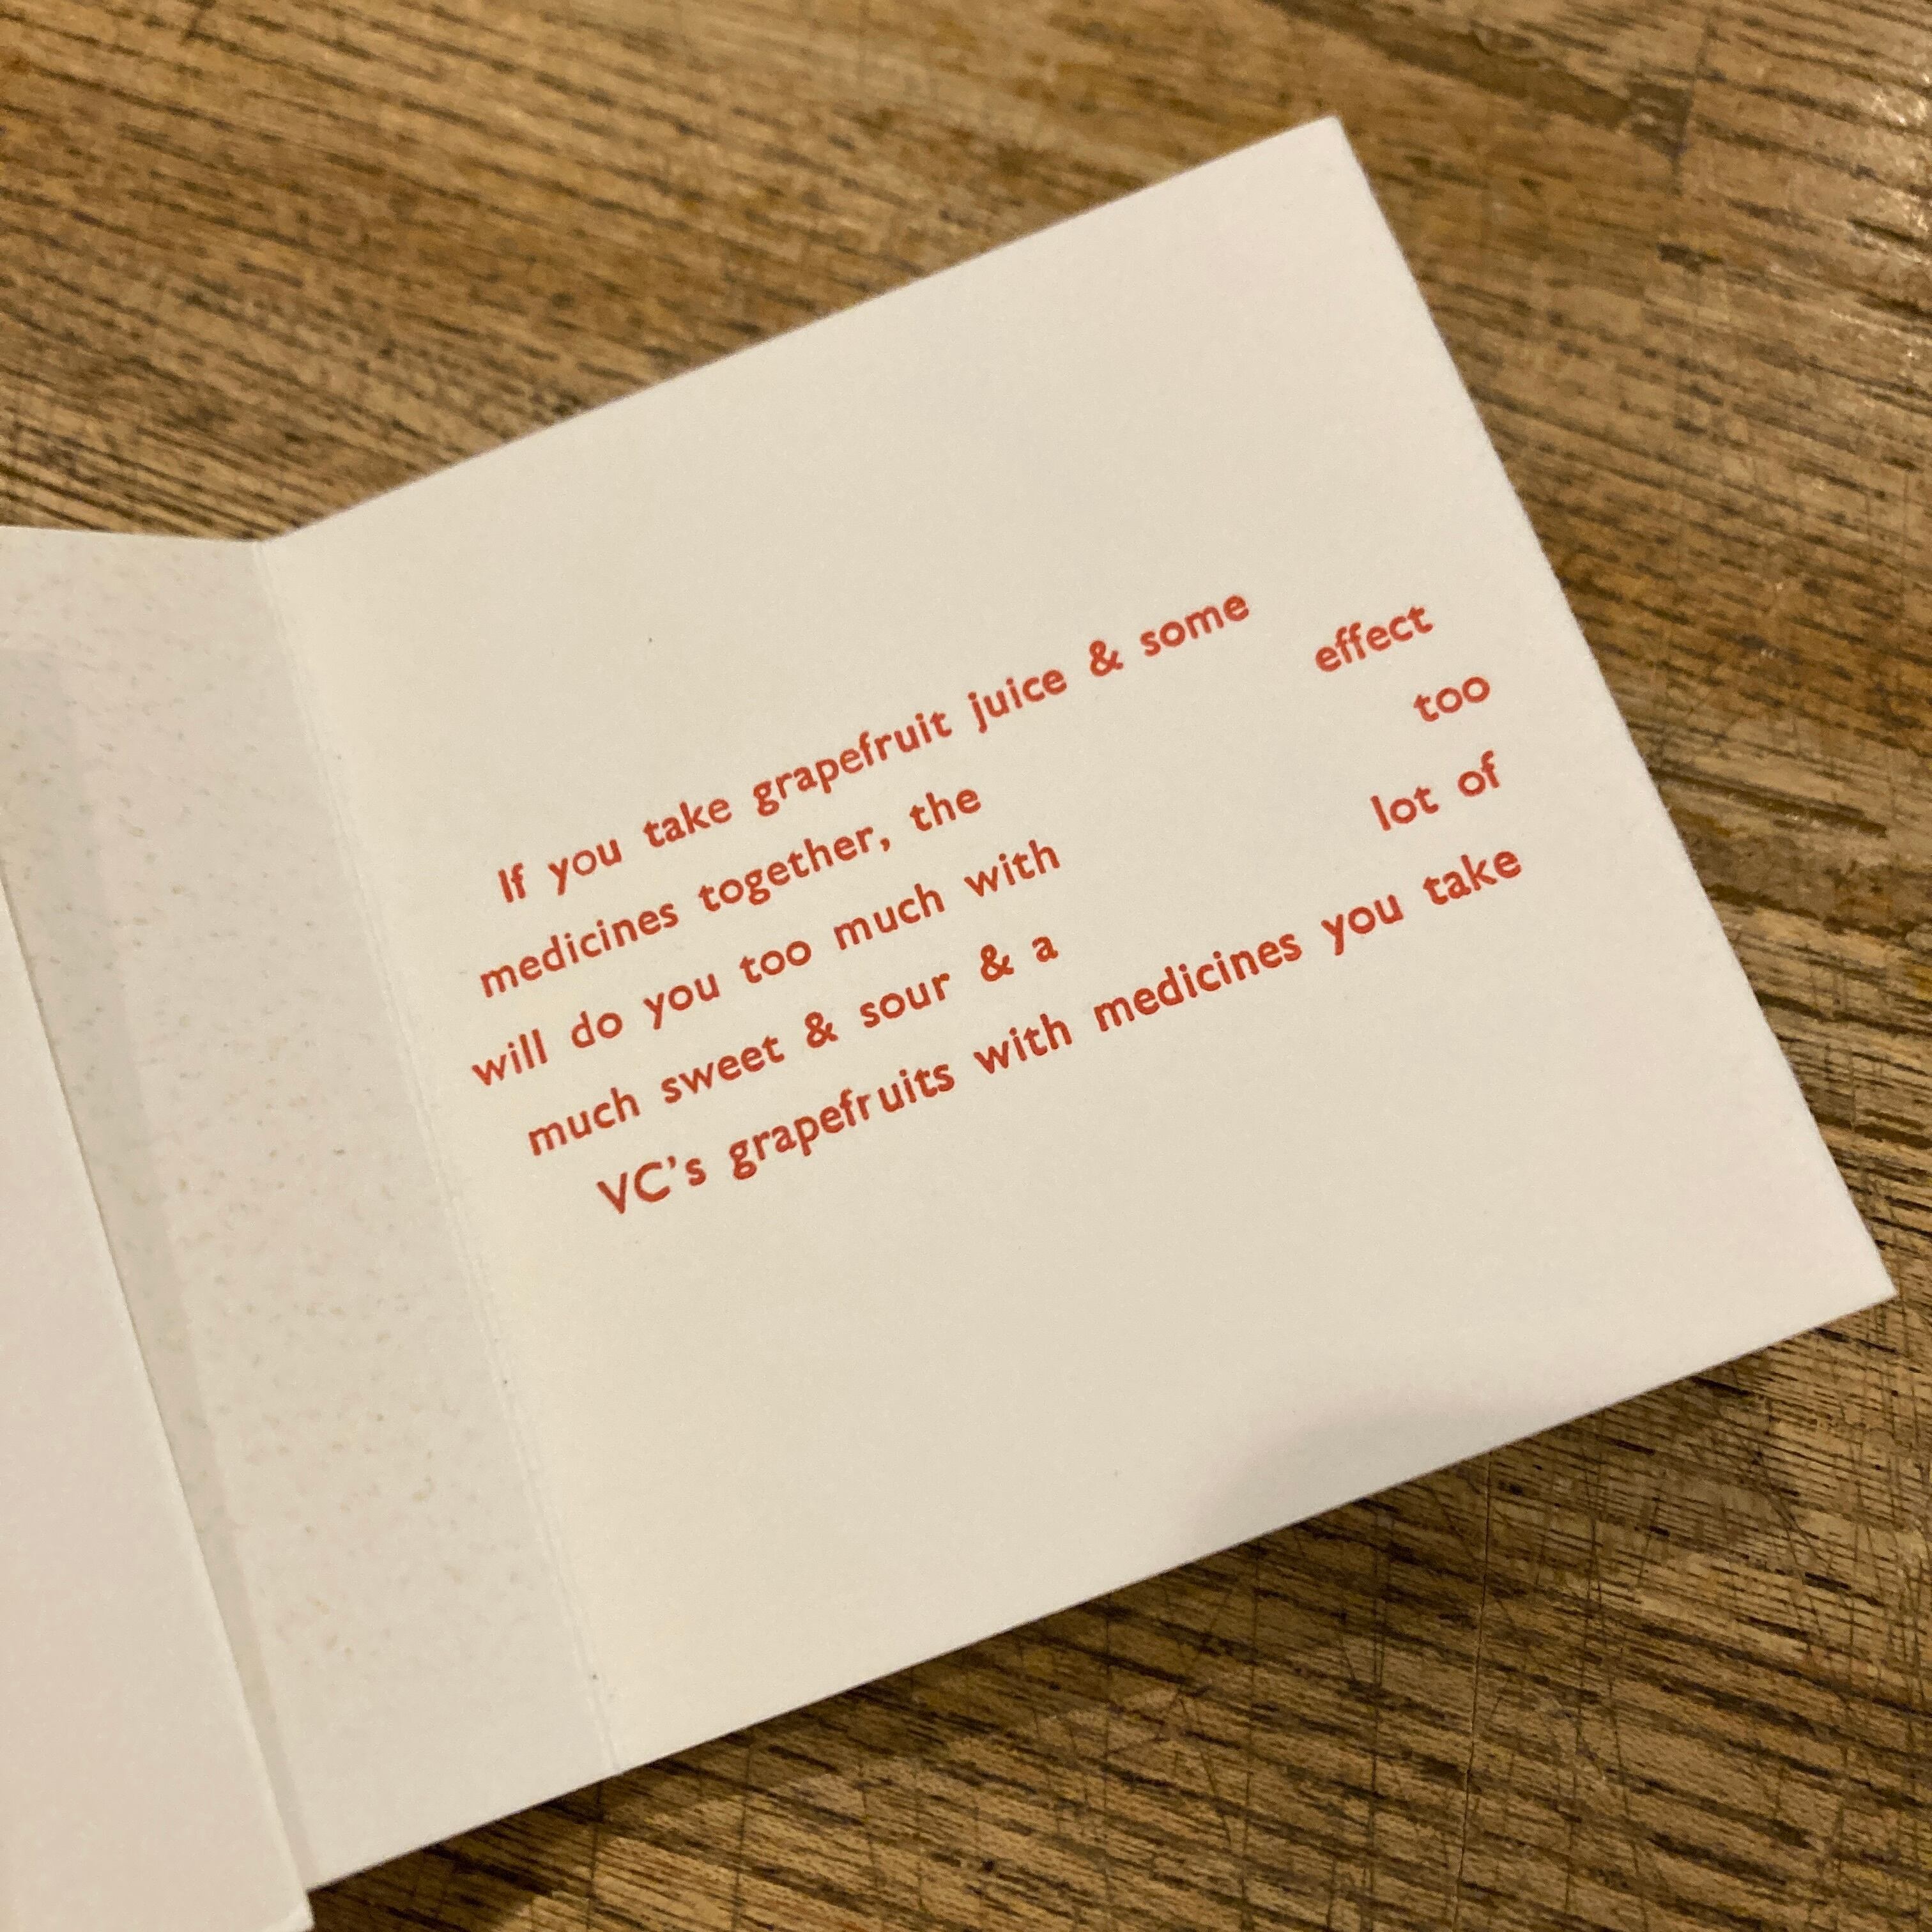 If you take grapefruit juice & some
medicines together, the effect
will do you too much with too
much sweet & sour & a lot of
VC's grapefruits with medicines you take